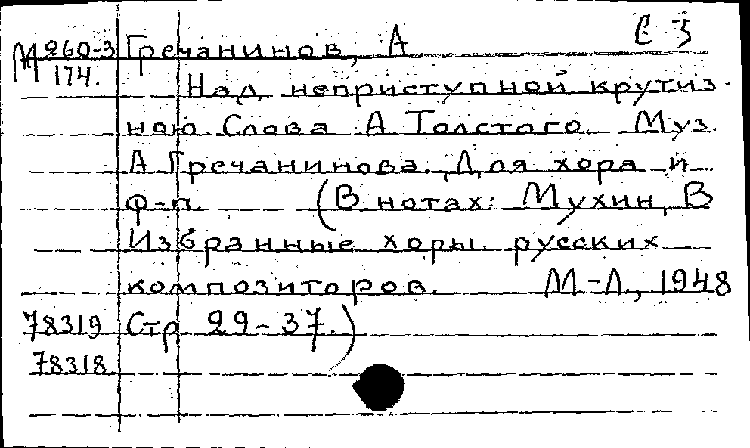 М 260-3 Гречанинов, А Е-5
174.
Над неприступной крутиз-
ною Слова А Толстого. Муз.
А Гречанинова. Для хора и
ф-п. (В нотах: Мухин, В
Избранные хоры русских
композиторов. М-Л, 1948
78319 Стр 29-37.)
78318